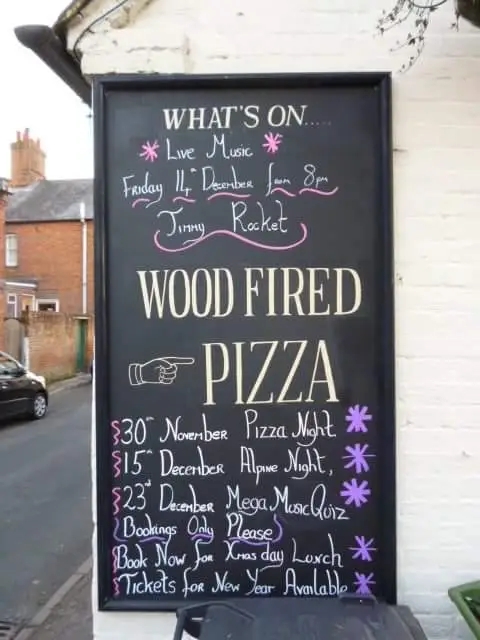 WHAT'S ON.....
Live Music
Friday 14th December from 8pm
Timmy Rocket
WOOD FIRED
PIZZA
30th November Pizza Night
15th December Alpine Night,
23rd December Mega Music Quiz
(Bookings Only Please)
Book Now for Xmas day Lunch
Tickets for New Year Available